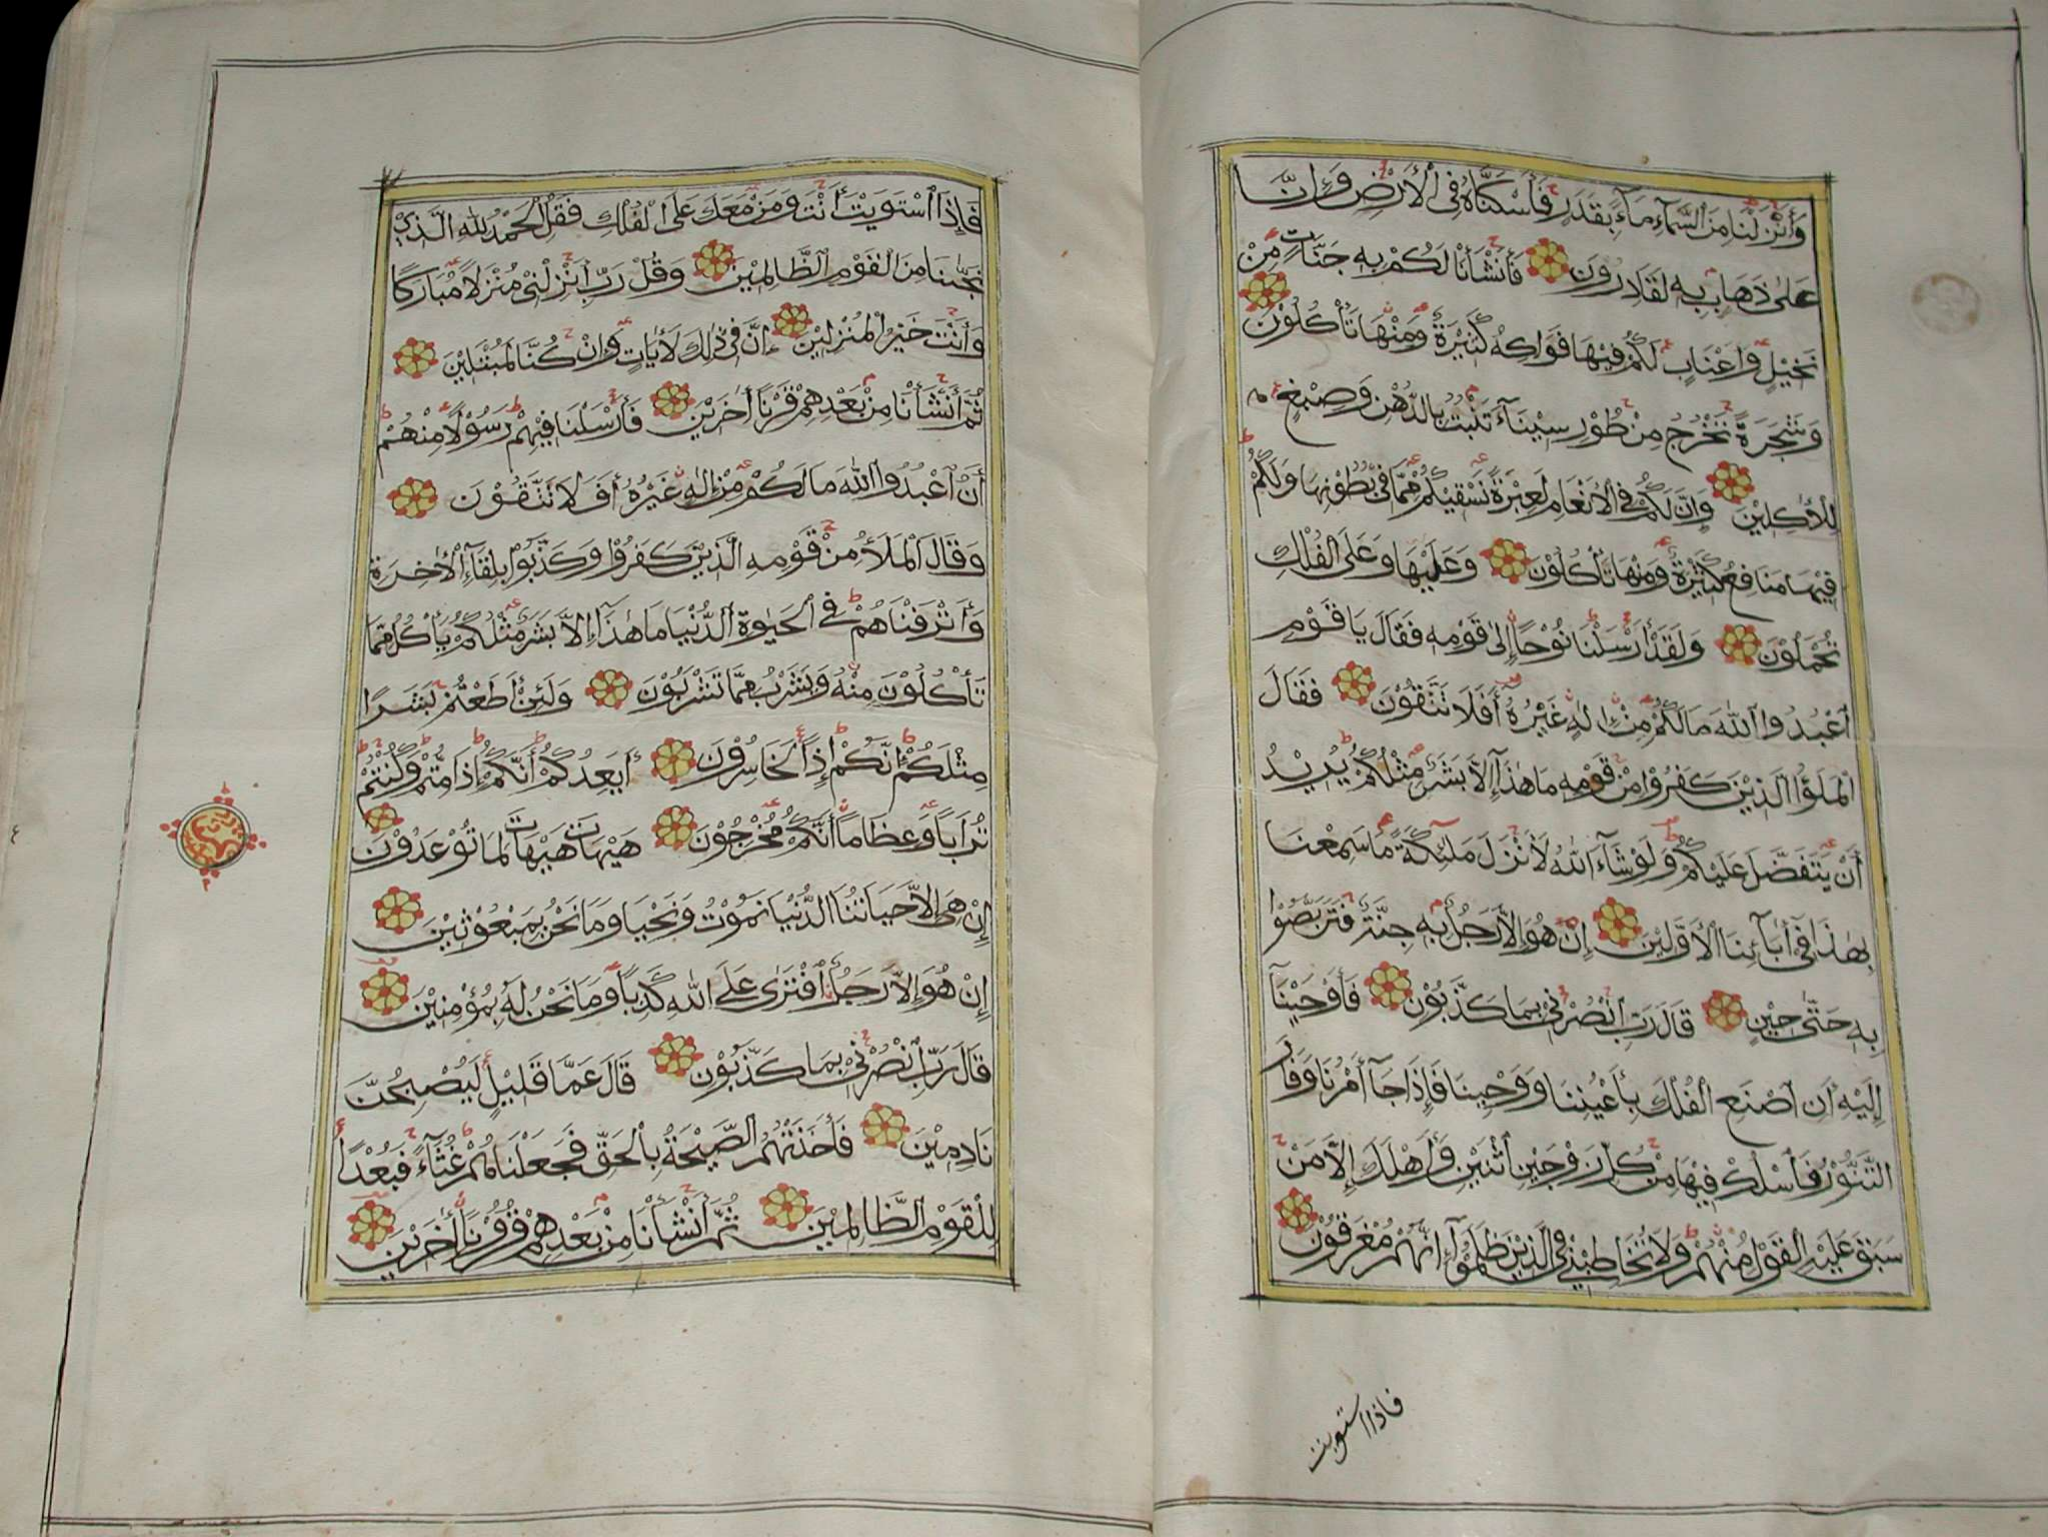 وَأَنْزَلْنَا مِنَ السَّمَآءِ مَآءً بِقَدَرٍ فَأَسْكَنَّاهُ فِي الْأَرْضِ وَإِنَّا
عَلٰى ذَهَابٍ بِهِ لَقَادِرُونَ فَأَنْشَأْنَا لَكُمْ بِهِ جَنَّاتٍ مِنْ
نَخِيْلٍ وَأَعْنَابٍ لَكُمْ فِيْهَا فَوَاكِهُ كَثِيْرَةٌ وَمِنْهَا تَأْكُلُوْنَ
وَشَجَرَةً تَخْرُجُ مِنْ طُوْرِ سِيْنَآءَ تَنْبُتُ بِالدُّهْنِ وَصِبْغٍ
لِلْأٰكِلِيْنَ وَإِنَّ لَكُمْ فِي الْأَنْعَامِ لَعِبْرَةً نُسْقِيْكُمْ مِمَّا فِيْ بُطُوْنِهَا وَلَكُمْ
فِيْهَا مَنَافِعُ كَثِيْرَةٌ وَمِنْهَا تَأْكُلُوْنَ وَعَلَيْهَا وَعَلَى الْفُلْكِ
تُحْمَلُوْنَ وَلَقَدْ أَرْسَلْنَا نُوْحًا إِلٰى قَوْمِهِ فَقَالَ يَا قَوْمِ
اعْبُدُوا اللّٰهَ مَا لَكُمْ مِنْ إِلٰهٍ غَيْرُهُ أَفَلَا تَتَّقُوْنَ فَقَالَ
الْمَلَؤُا الَّذِيْنَ كَفَرُوْا مِنْ قَوْمِهِ مَا هٰذَآ إِلَّا بَشَرٌ مِثْلُكُمْ يُرِيْدُ
أَنْ يَتَفَضَّلَ عَلَيْكُمْ وَلَوْ شَآءَ اللّٰهُ لَأَنْزَلَ مَلٰئِكَةً مَا سَمِعْنَا
بِهٰذَا فِيْ آبَآئِنَا الْأَوَّلِيْنَ إِنْ هُوَ إِلَّا رَجُلٌ بِهِ جِنَّةٌ فَتَرَبَّصُوْا
بِهِ حَتّٰى حِيْنٍ قَالَ رَبِّ انْصُرْنِيْ بِمَا كَذَّبُوْنِ فَأَوْحَيْنَآ
إِلَيْهِ أَنِ اصْنَعِ الْفُلْكَ بِأَعْيُنِنَا وَوَحْيِنَا فَإِذَا جَآءَ أَمْرُنَا وَفَارَ
التَّنُّوْرُ فَاسْلُكْ فِيْهَا مِنْ كُلٍّ زَوْجَيْنِ اثْنَيْنِ وَأَهْلَكَ إِلَّا مَنْ
سَبَقَ عَلَيْهِ الْقَوْلُ مِنْهُمْ وَلَا تُخَاطِبْنِيْ فِي الَّذِيْنَ ظَلَمُوْآ إِنَّهُمْ مُغْرَقُوْنَ
فاذا استويت
فَإِذَا اسْتَوَيْتَ أَنْتَ وَمَنْ مَعَكَ عَلَى الْفُلْكِ فَقُلِ الْحَمْدُ لِلّٰهِ الَّذِيْ
نَجّٰىنَا مِنَ الْقَوْمِ الظَّالِمِيْنَ وَقُلْ رَبِّ أَنْزِلْنِيْ مُنْزَلًا مُبَارَكًا
وَأَنْتَ خَيْرُ الْمُنْزِلِيْنَ إِنَّ فِيْ ذٰلِكَ لَأٰيَاتٍ وَإِنْ كُنَّا لَمُبْتَلِيْنَ
ثُمَّ أَنْشَأْنَا مِنْ بَعْدِهِمْ قَرْنًا أٰخَرِيْنَ فَأَرْسَلْنَا فِيْهِمْ رَسُوْلًا مِنْهُمْ
أَنِ اعْبُدُوا اللّٰهَ مَا لَكُمْ مِنْ إِلٰهٍ غَيْرُهُ أَفَلَا تَتَّقُوْنَ
وَقَالَ الْمَلَأُ مِنْ قَوْمِهِ الَّذِيْنَ كَفَرُوْا وَكَذَّبُوْا بِلِقَآءِ الْأٰخِرَةِ
وَأَتْرَفْنَاهُمْ فِي الْحَيٰوةِ الدُّنْيَا مَا هٰذَآ إِلَّا بَشَرٌ مِثْلُكُمْ يَأْكُلُ مِمَّا
تَأْكُلُوْنَ مِنْهُ وَيَشْرَبُ مِمَّا تَشْرَبُوْنَ وَلَئِنْ أَطَعْتُمْ بَشَرًا
مِثْلَكُمْ إِنَّكُمْ إِذًا لَخَاسِرُوْنَ أَيَعِدُكُمْ أَنَّكُمْ إِذَا مِتُّمْ وَكُنْتُمْ
تُرَابًا وَعِظَامًا أَنَّكُمْ مُخْرَجُوْنَ هَيْهَاتَ هَيْهَاتَ لِمَا تُوْعَدُوْنَ
إِنْ هِيَ إِلَّا حَيَاتُنَا الدُّنْيَا نَمُوْتُ وَنَحْيَا وَمَا نَحْنُ بِمَبْعُوْثِيْنَ
إِنْ هُوَ إِلَّا رَجُلٌ افْتَرٰى عَلَى اللّٰهِ كَذِبًا وَمَا نَحْنُ لَهُ بِمُؤْمِنِيْنَ
قَالَ رَبِّ انْصُرْنِيْ بِمَا كَذَّبُوْنِ قَالَ عَمَّا قَلِيْلٍ لَيُصْبِحُنَّ
نَادِمِيْنَ فَأَخَذَتْهُمُ الصَّيْحَةُ بِالْحَقِّ فَجَعَلْنَاهُمْ غُثَآءً فَبُعْدًا
لِلْقَوْمِ الظَّالِمِيْنَ ثُمَّ أَنْشَأْنَا مِنْ بَعْدِهِمْ قُرُوْنًا أٰخَرِيْنَ